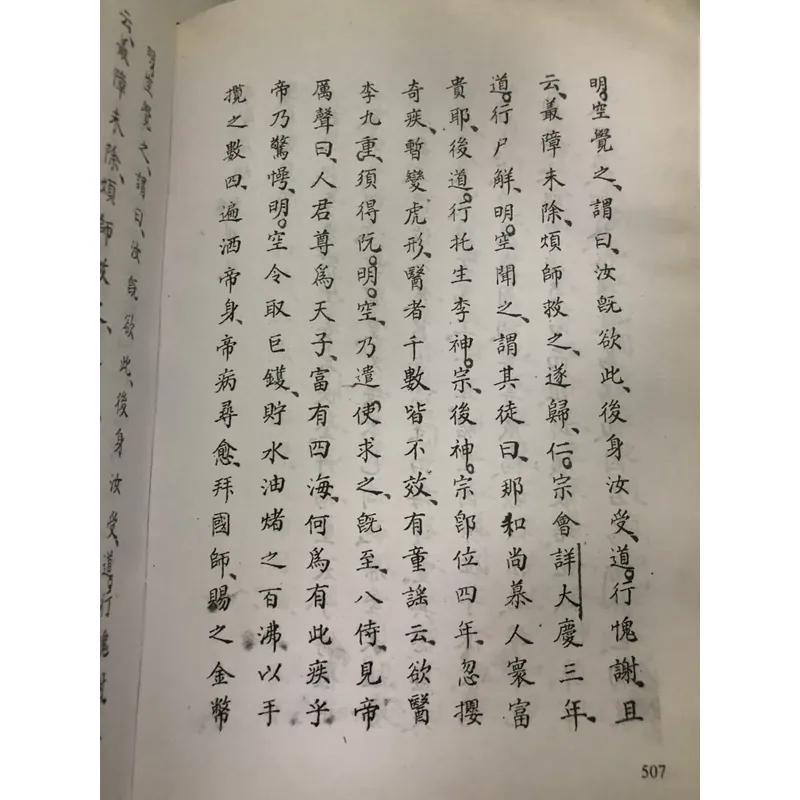 明空覺之、謂曰、汝既欲此、後身汝受、道行愧謝、且
云、障未除、煩師救之、遂歸、仁宗會詳大慶三年、
道行尸解、明空聞之、謂其徒曰、那和尚慕人寰富
貴耶、後道行托生李神宗、後神宗即位四年、忽攖
奇疾、暫變虎形、醫者千數皆不效、有童謠云、欲醫
李九重、須得阮明空、乃遣使求之、既至、八侍、見帝
厲聲曰、人君尊爲天子、富有四海、何爲有此疾乎
帝乃驚愕、明空令取巨鑊、貯水油煮之百沸、以手
攬之數四、遍洒帝身、帝病尋愈、拜國師、賜之金幣
507
明空覺之、謂曰、汝既欲此、後身汝受、道行愧
云、障未除、煩師